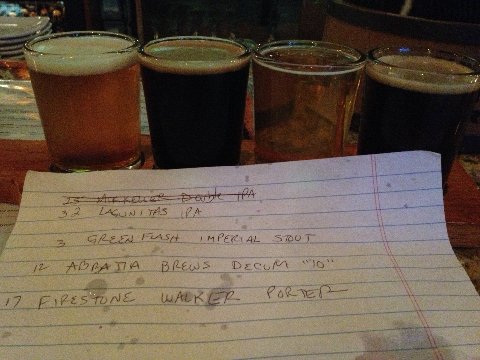 Double IPA
32 LAGUNITAS IPA
3 GREEN FLASH IMPERIAL STOUT
12 ABBATIA BREWS DECUM "10"
17 FIRESTONE WALKER PORTER